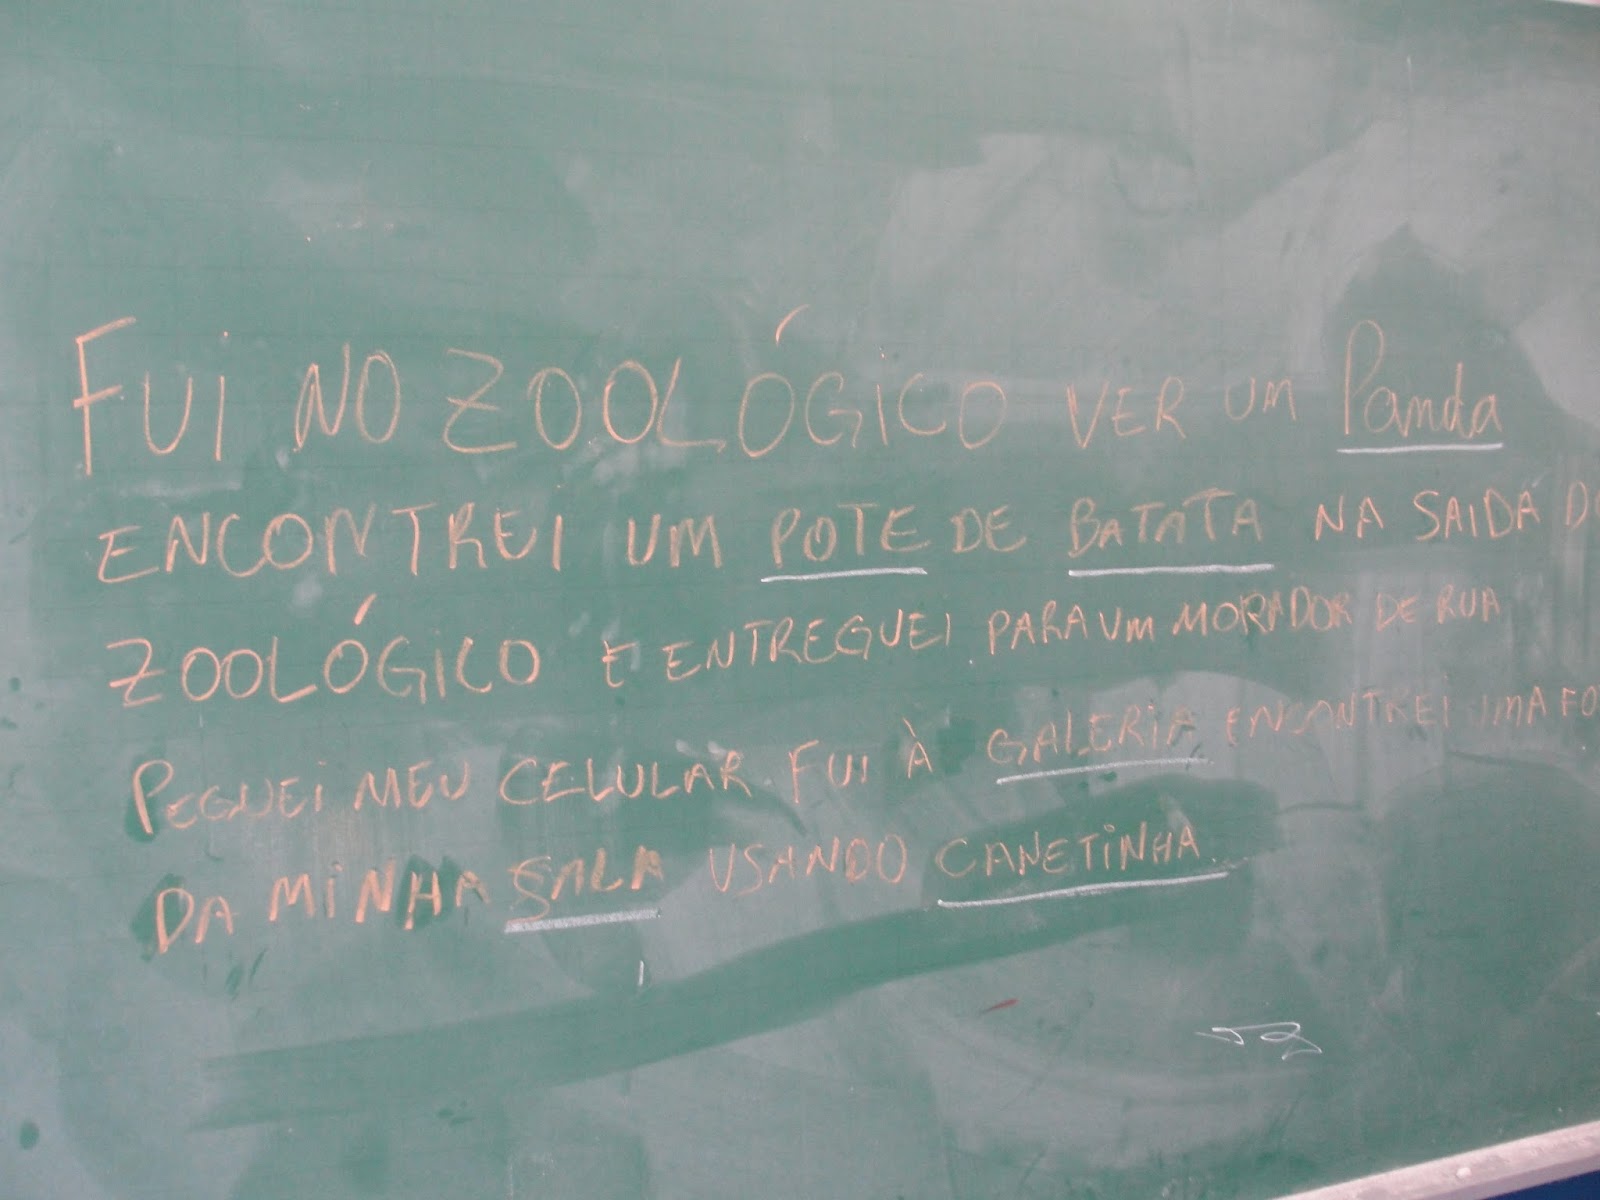 FUI NO ZOOLÓGICO VER UM Panda
ENCONTREI UM POTE DE BATATA NA SAIDA DO
ZOOLÓGICO E ENTREGUEI PARA UM MORADOR DE RUA
PEGUEI MEU CELULAR. FUI À GALERIA ENCONTREI UMA FO
DA MINHA SALA USANDO CANETINHA.